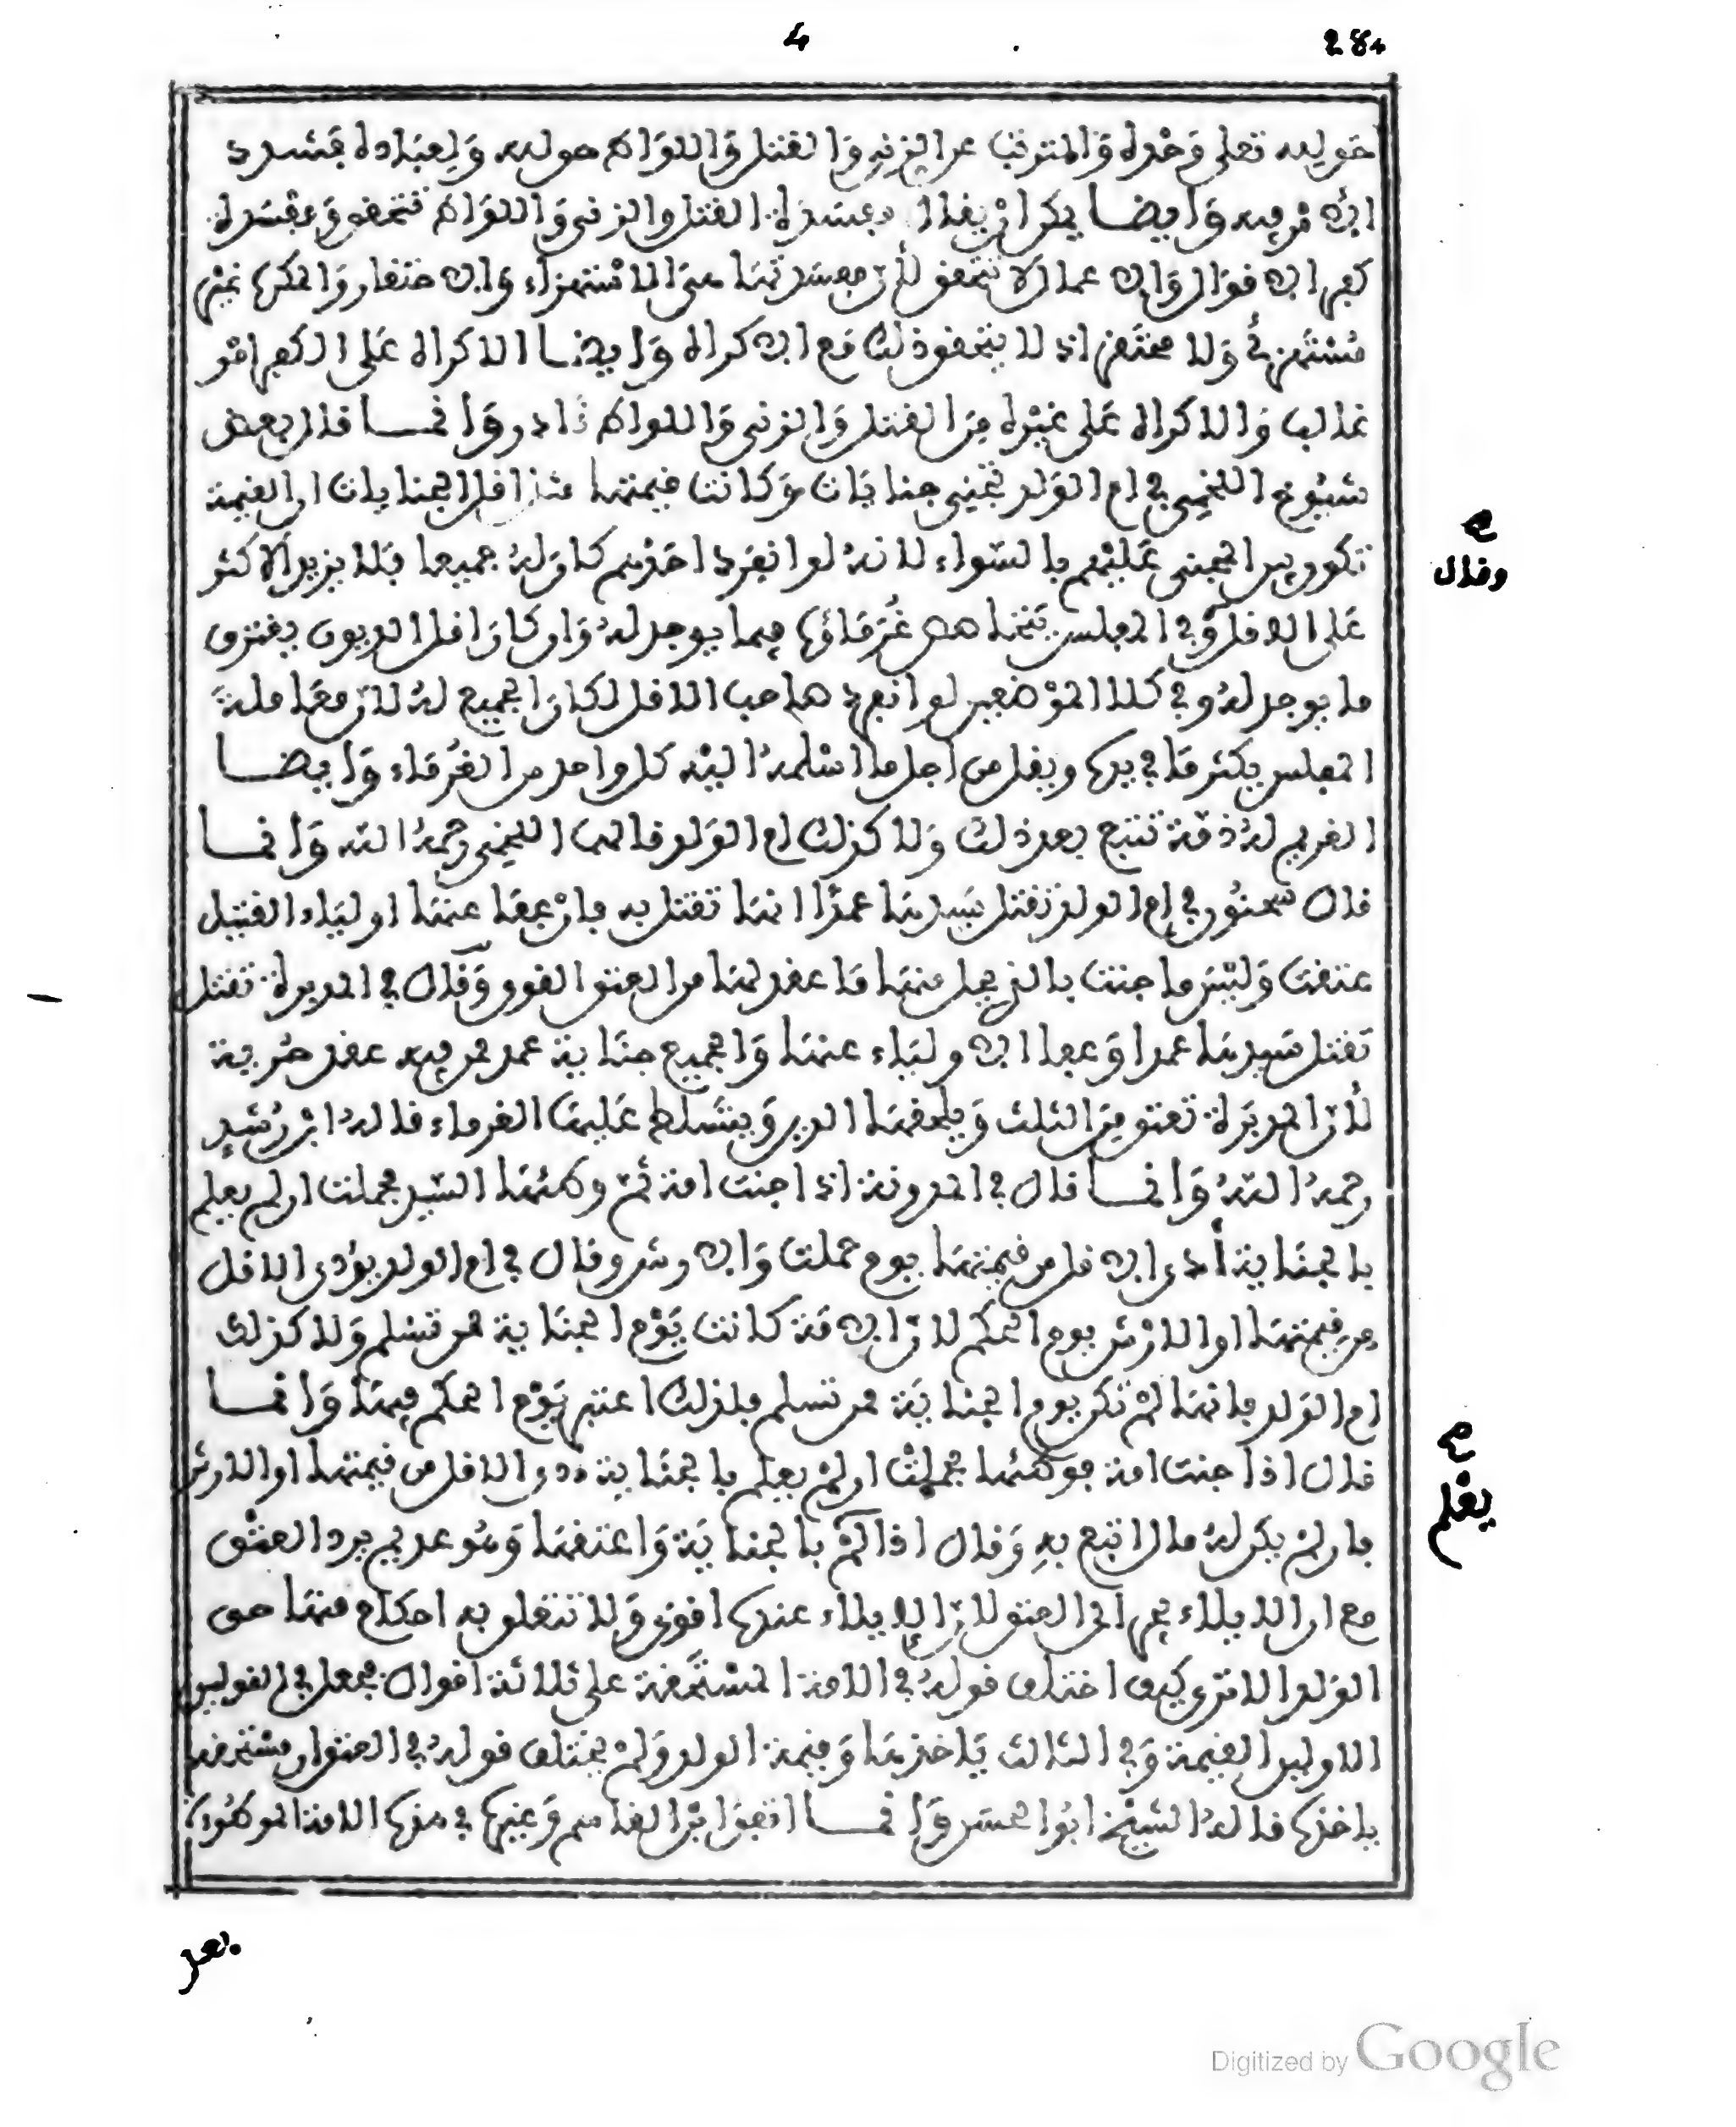 4 284
حق لله تعلى وحده والمترتب عن الزنى والقتل واللواط حق لله ولعباده بمفسدة
الاكراه وايضا يمكن ان يقال مفسدة القتل والزنى واللواط تتحقق ومفسدة
كفر الا فوال والا عمال لا تتحقق لان مفسدتها هي الاستهزاء والاحتقار والمكره غير
مستهزئ ولا محتقر اذ لا يتحقق ذلك مع الاكراه وايضا الاكراه على الكفر امر
غالب والاكراه على غيره من القتل والزنى واللواط نادر وانما قال بعض
شيوخ اللخمي في ام الولد تجني جنايات وكانت قيمتها مثل اقل الجنايات ان القيمة
تكون بين المجني عليهم بالسواء لانه لو انفرد احدهم كان له جميعها فلا يزيد الاكثر
على الاقل وفي المفلس يتحاصص غرماؤه فيما يوجد له وان كان اقل الديون يغترق
وقال
ما يوجد له وفي كلا الموضعين لو انفرد صاحب الاقل لكان الجميع له لان معاملة
المفلس يكثر ما في يده ويقل من اجل ما اسلمه اليه كل واحد من الغرماء وايضا
الغريم له ذمة تتبع بعد ذلك ولا كذلك ام الولد قاله اللخمي رحمه الله وانما
قال سحنون في ام الولد تقتل سيدها عمدا انها تقتل به فان عفا عنها اولياء القتيل
عتقت وليس ما جنت بالذي يحل منها ما عقد لها من العتق القوي وقال في المدبرة تقتل
تقتل سيدها عمدا وعفا الاولياء عنها والجميع جناية عمد ممن فيه عقد حرية
لان المدبرة تعتق من الثلث ويلحقها الدين ويتسلط عليها الغرماء قاله ابن رشد
رحمه الله وانما قال في المدونة اذا جنت امة ثم وطئها السيد فحملت ان لم يعلم
بالجناية أدى الاقل من قيمتها يوم حملت والارش وقال في ام الولد يؤدي الاقل
من قيمتها او الارش يوم الحكم لان الامة كانت يوم الجناية ممن تسلم ولا كذلك
ام الولد فانها لم تكن يوم الجناية ممن تسلم فلذلك اعتبر يوم الحكم فيها وانما
قال اذا جنت امة فوطئها فحملت ان لم يعلم بالجناية ودى الاقل من قيمتها او الارش
يعلم
فان لم يكن له مال اتبع به وقال اذا لم بالجناية واعتقها وهو عديم يرد العتق
مع ان الايلاء يجر الى العتق لان الايلاء عنده اقوى ولا تتعلق به احكام منها حق
الولد الا ترى كيف اختلف قوله في الامة المستحقة على ثلاثة اقوال فجعل في القولين
الاولين القيمة وفي الثالث ياخذها وقيمة الولد ولم يختلف قوله في العتق ان مستحقه
ياخذه قاله الشيخ ابو الحسن وانما اتفق ابن القاسم وغيره في هذه الامة الموطوءة
بعد
Digitized by Google